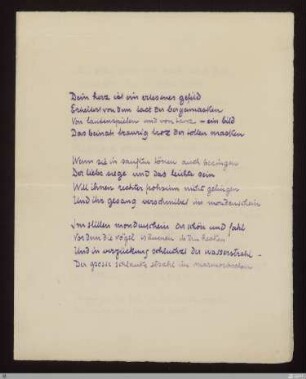 Dein herz ist ein erlesenes gefild
Erhellet von dem takt der bergamasken
Von lautenspielen und von tanz – ein bild
Das beinah traurig trotz der tollen masken

Wenn sie in sanften tönen auch besingen
Der liebe siege und das leichte sein
Will ihnen rechter frohsinn nicht gelingen
Und ihr gesang verschmilzt im mondenschein

Im stillen mondenschein der schön und fahl
Vor dem die vögel träumen in den
Und in verzückung schluchzet der wasserstrahl –
Der grosse schlanke strahl im marmorbecken